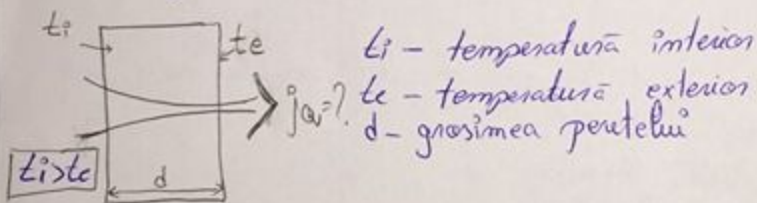 ti
te
jQ=?
ti>te
d
ti - temperatură interior
te - temperatură exterior
d - grosimea peretelui